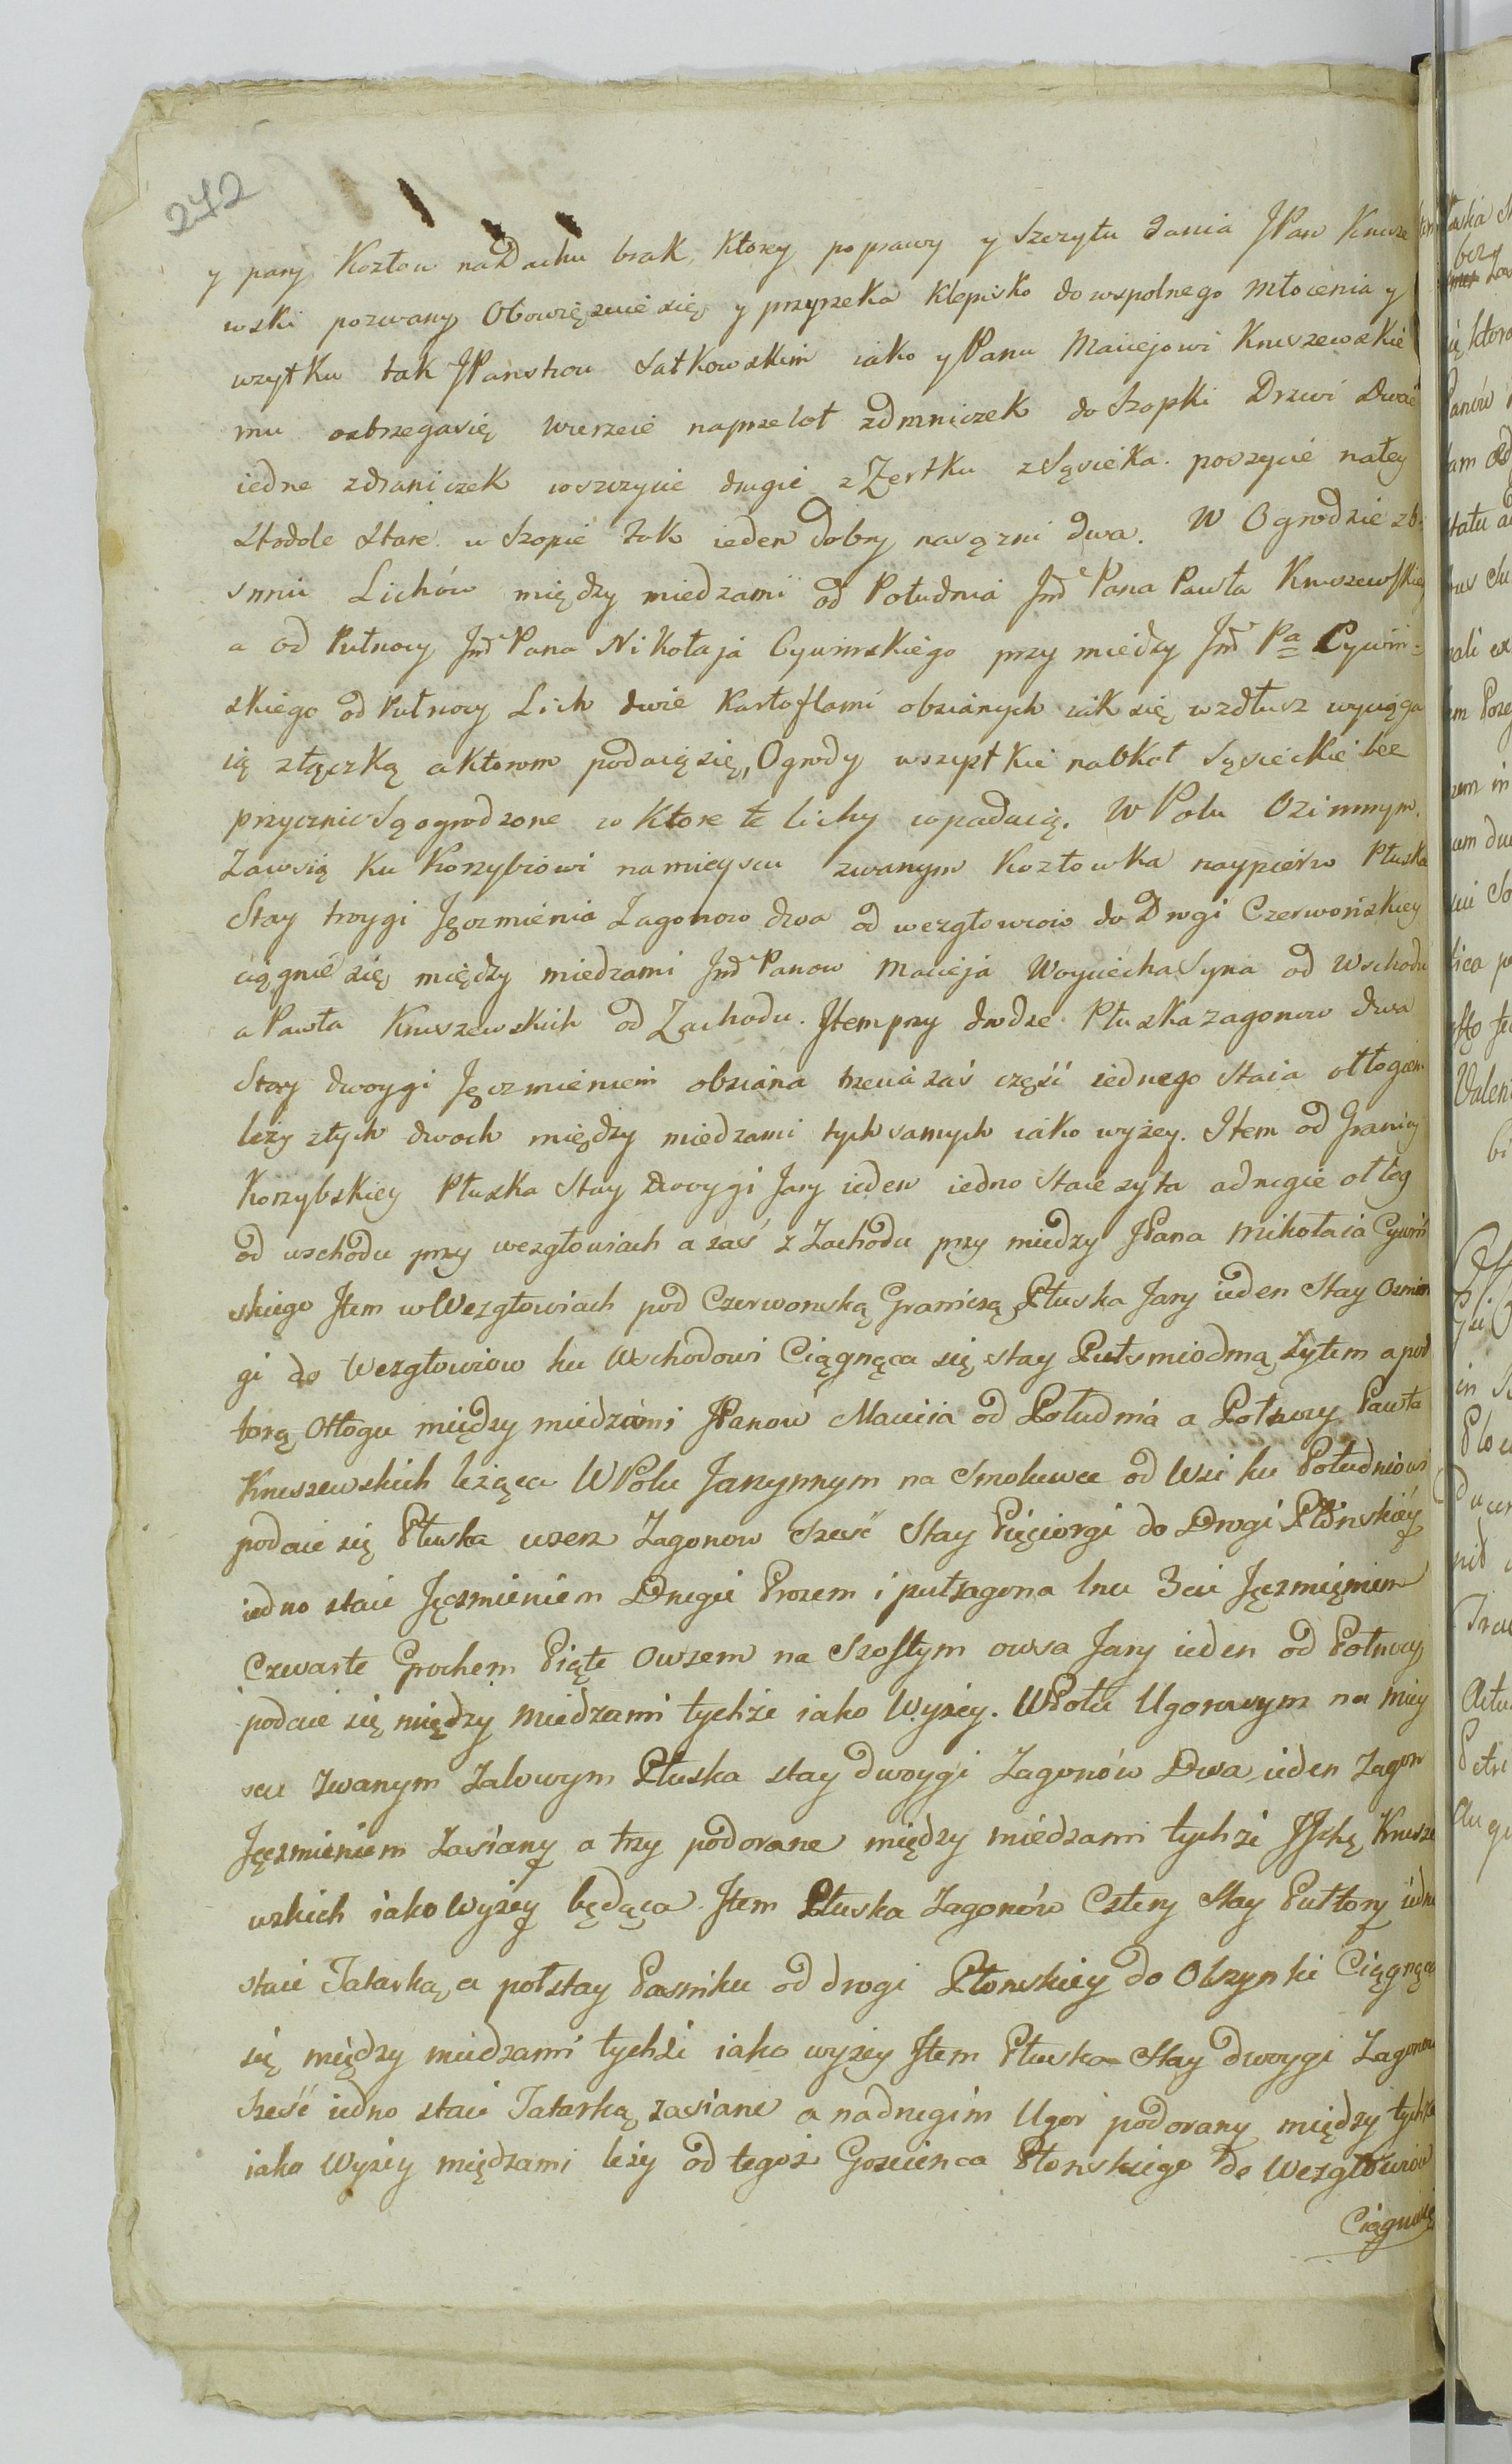 272
y pary Kozłow na Dachu brak, Ktorey poprawy y Szczytu dania JPan Krusze
wski pozwany Obowięzuie się y przyrzeka Klepisko do wspolnego Młocenia y
uzytku tak JPanstwu Sutkowskim iako y Panu Maciejowi Kruszewskie
mu ostrzega się Wierzeie naprzelot do Szopki Drzwi Dwoie
iedne zdraniczek w szczycie drugie z Zertku z Sąsieka. poszycie na tey
Stodole Stare w Szopie Tok ieden dobry na sązni dwa. W Ogrodzie
Lichów między miedzami od Południa Jmć Pana Pawła Kruszewskie
a od Pułnocy Jmć Pana Nikołaja Cywinskiego przy miedzy Jmć Pa Cywin=
skiego od Pułnocy Lich dwie Kartoflami obsianych iak się wzdłusz wyciąga
ią złączką a Ktorem podaią się, Ogrody wszystkie nabkoł Sąsieckie bee
przycznie są ogrodzone w Ktore te lichy wpadaią. W Polu Ozimnym.
Zawsią Ku Korzybiowi na mieyscu zwanym Kozłowka naypierw Płuska
Stay troygi Jęczmienia Zagonow dwa od wezgłowiow do Drogi Czerwońskiey
ciągnie się między miedzami Jmć Panow Macieja Woyciecha Syna od Wschodu
a Pawła Kruszewskich od Zachodu. Item przy drodze Płuska zagonow dwa
Stay dwoygi Jęczmieniem obsiana trzecia zaś część iednego Staia otłogiem
leży z tych dwoch między miedzami tych samych iako wyżey. Item od Granicy
Korzybskiey Płuska Stay dwoygi Jary ieden iedno Staie zyta a drugie otłog
od wschodu przy wezgłowiach a zaś z Zachodu przy miedzy JPana Mikołaia Cywin
skiego Item w Wezgłowiach pod Czerwonską Granicą Płuska Jary ieden Stay Osmior
gi do Wezgłowiow ku Wschodowi Ciągnąca się stay Pułsmiodmą Zytem a poł
torą Otłogu między miedzami JPanow Macieia od Południa a Połnocy Pawła
Kruszewskich leżąca W Polu Jarzynnym na Smolewce od Wsi ku Południowi
podaie się Płuska wszerz Zagonow sześć Stay Pięciorgi do Drogi Płonskiey
iedno staie Jęczmieniem Drugie Prosem i pułzagona lnu 3cie Jęczmięniem
Czwarte Grochem Piąte Owsem na Szostym owsa Jary ieden od Połnocy
podaie się między miedzami tychże iako Wyżey. W Polu Ugorowym na miey
scu zwanym Zalowym Płuska stay dwoygi Zagonów Dwa, ieden Zagon
Jęczmieniem Zasiany a trzy podorane między miedzami tychże Krusze
wskich iako Wyżey będąca. Item Płuska Zagonów Cztery Stay Pułtory iedno
staie Tatarką, a połstay Pasniku od drogi Płonskiey do Olszynki Ciągnąca
się między miedzami tychże iako wyżey Item Płuska Stay dwoygi Zagonow
sześć iedno staie Tatarką zasiane a na drugim Ugor podorany między tychże
iako Wyżey międzami leży od tegoż Goscienca Płonskiego do Wezgłowiow
Ciągnące